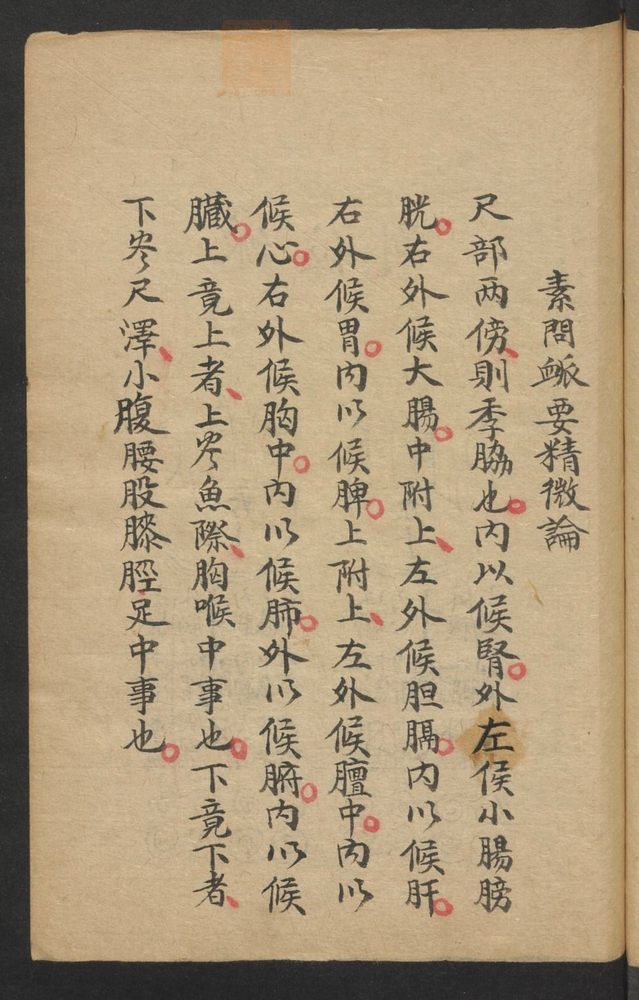 素問衇要精微論
尺部两傍、則季脇也。内以候腎。外左候小腸膀
胱。右外候大腸。中附上、左外候胆膈。内以候肝。
右外候胃。内以候脾。上附上、左外候膻中。内以
候心。右外候胸中。内以候肺。外以候腑。内以候
臓。上竟上者、上尽魚際、胸喉中事也。下竟下者、
下尽尺澤、小腹腰股膝脛足中事也。